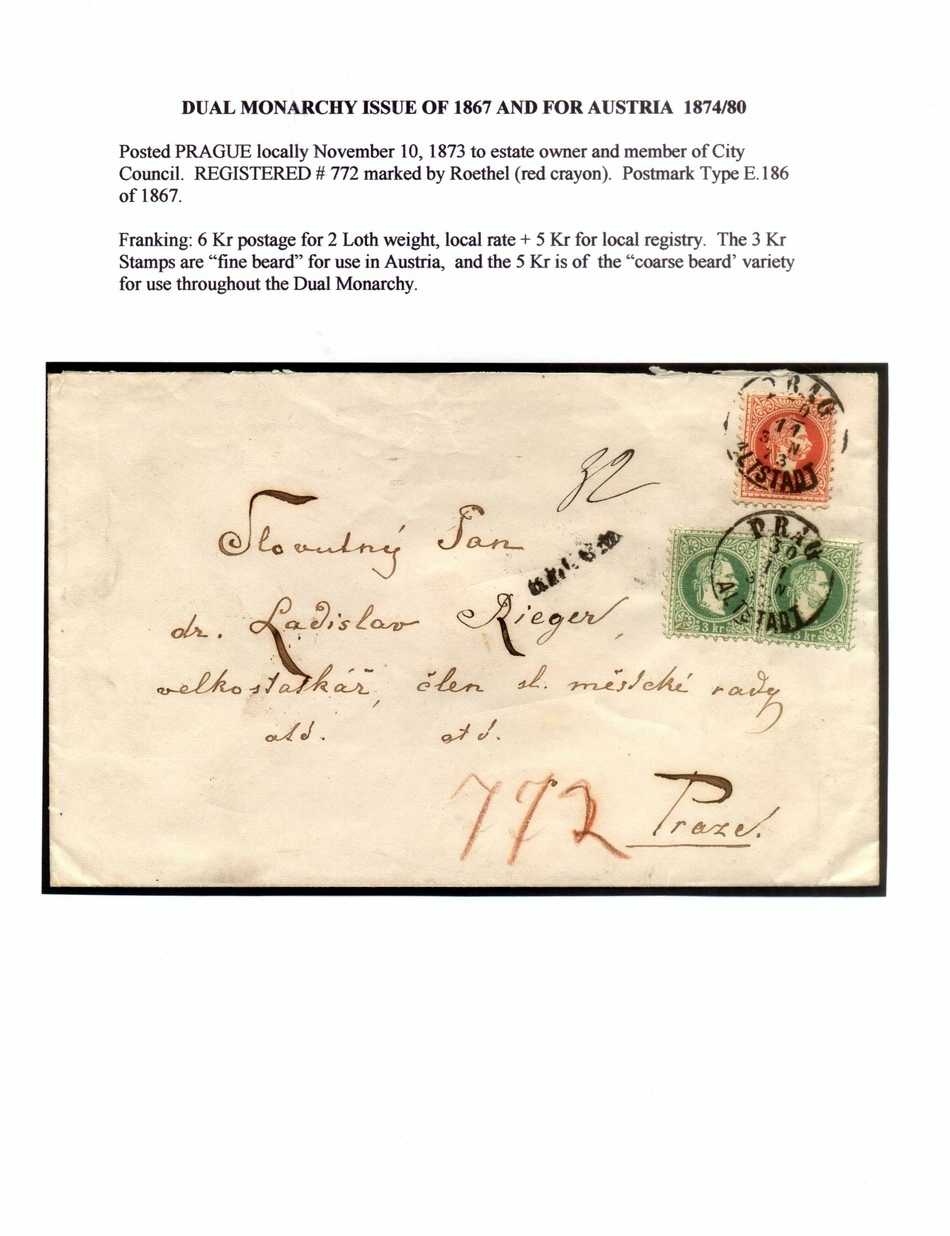 DUAL MONARCHY ISSUE OF 1867 AND FOR AUSTRIA 1874/80
Posted PRAGUE locally November 10, 1873 to estate owner and member of City
Council. REGISTERED # 772 marked by Roethel (red crayon). Postmark Type E.186
of 1867.
Franking: 6 Kr postage for 2 Loth weight, local rate + 5 Kr for local registry. The 3 Kr
Stamps are “fine beard” for use in Austria, and the 5 Kr is of the “coarse beard’ variety
for use throughout the Dual Monarchy.
PRAG
11
3 N
73
ALTSTADT
32
Slovutný Pan
PRAG
30
11
N
ALTSTADT
3 kr
3 kr
dr. Ladislav Rieger,
velkostatkář, člen sl. městské rady
atd. atd.
772
Praze.